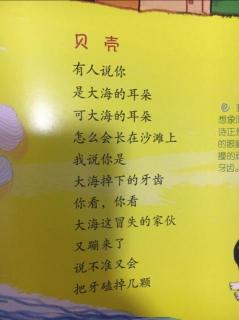 贝壳
有人说你
是大海的耳朵
可大海的耳朵
怎么会长在沙滩上
我说你是
大海掉下的牙齿
你看，你看
大海这冒失的家伙
又蹦来了
说不准又会
把牙磕掉几颗
想象
诗正
的眼
撞的
牙齿。